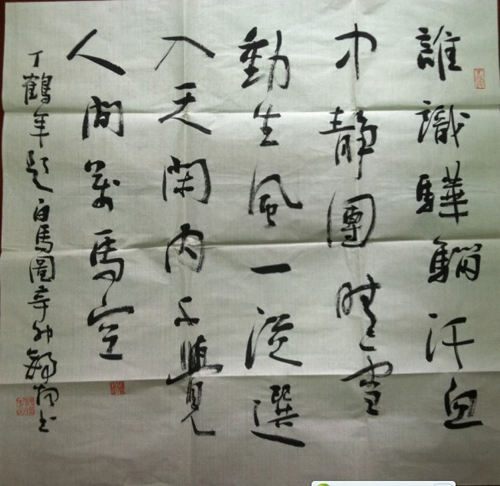 誰識驊騮汗血
中靜團晴雪
動生風一從選
入天閑内不覺
人間萬馬空
丁鶴年題白馬圖辛卯